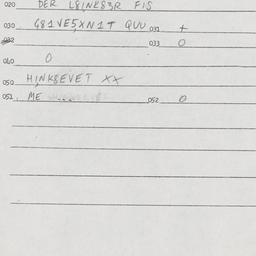 020 DER L8INK83R FIS
030 G81VE5XN1T QUU 031 +
032 033 O
040 O
050 HINK8EVET XX
051 ME 052 O